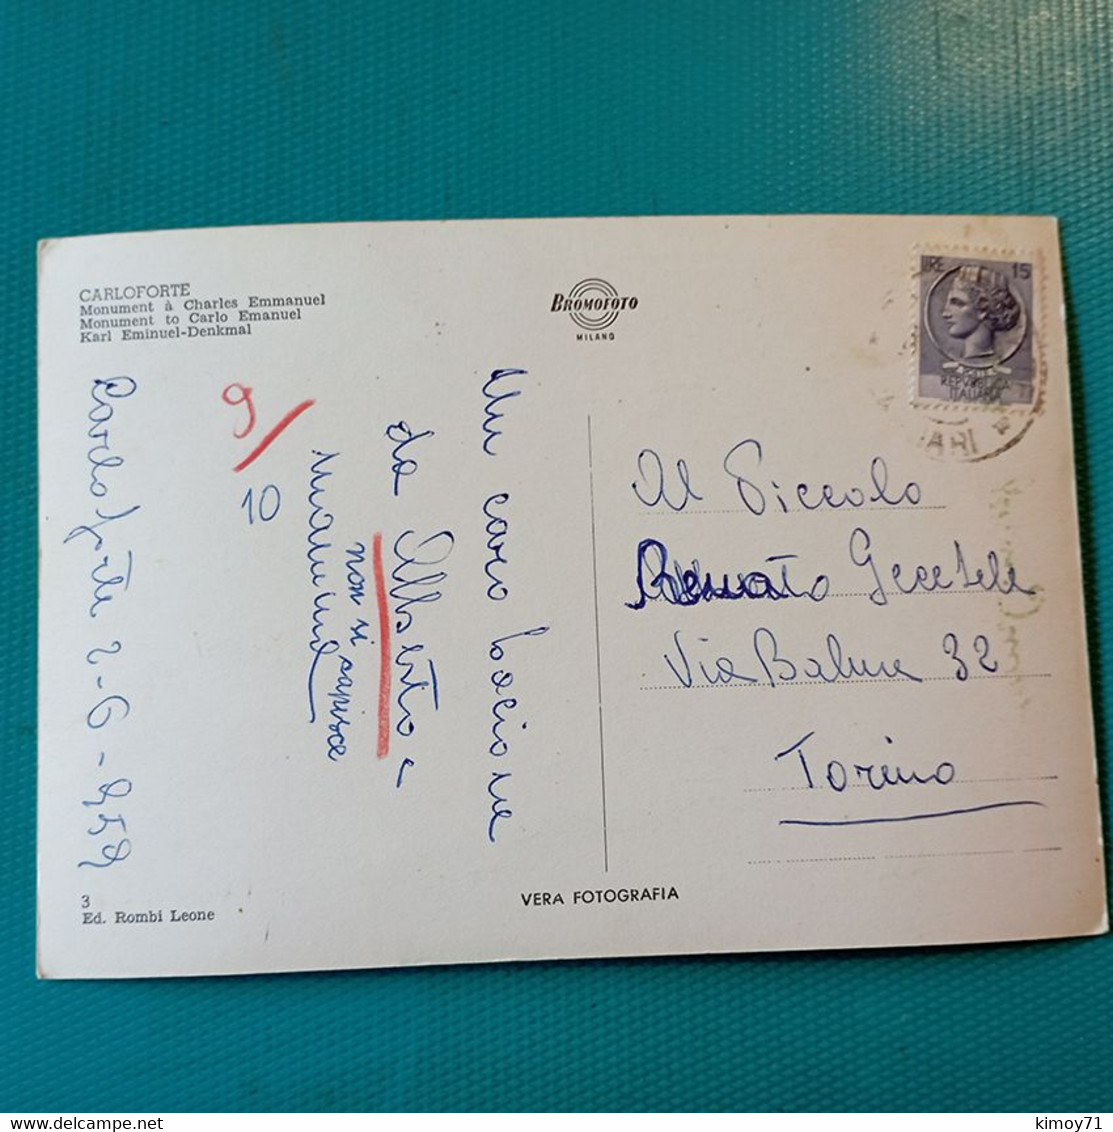 CARLOFORTE
Monument à Charles Emmanuel
Monument to Carlo Emanuel
Karl Eminuel-Denkmal
BROMOFOTO
MILANO
LIRE 15
REPVBBLICA
ITALIANA
ARI
Carloforte 2-6-959
Un caro bacione
da Alberto e
non si capisce
mamma
9/
10
Al Piccolo
Renato
Via Balme 32
Torino
3
Ed. Rombi Leone
VERA FOTOGRAFIA
kimoy71